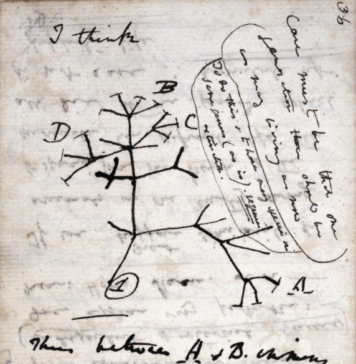 I think
36
Case must be that one
generation then should be
as many living as now
To do this & to have many species in
same genus (as is) requires
extinction.
B
C
D
A
1
Thus between A & B. immens